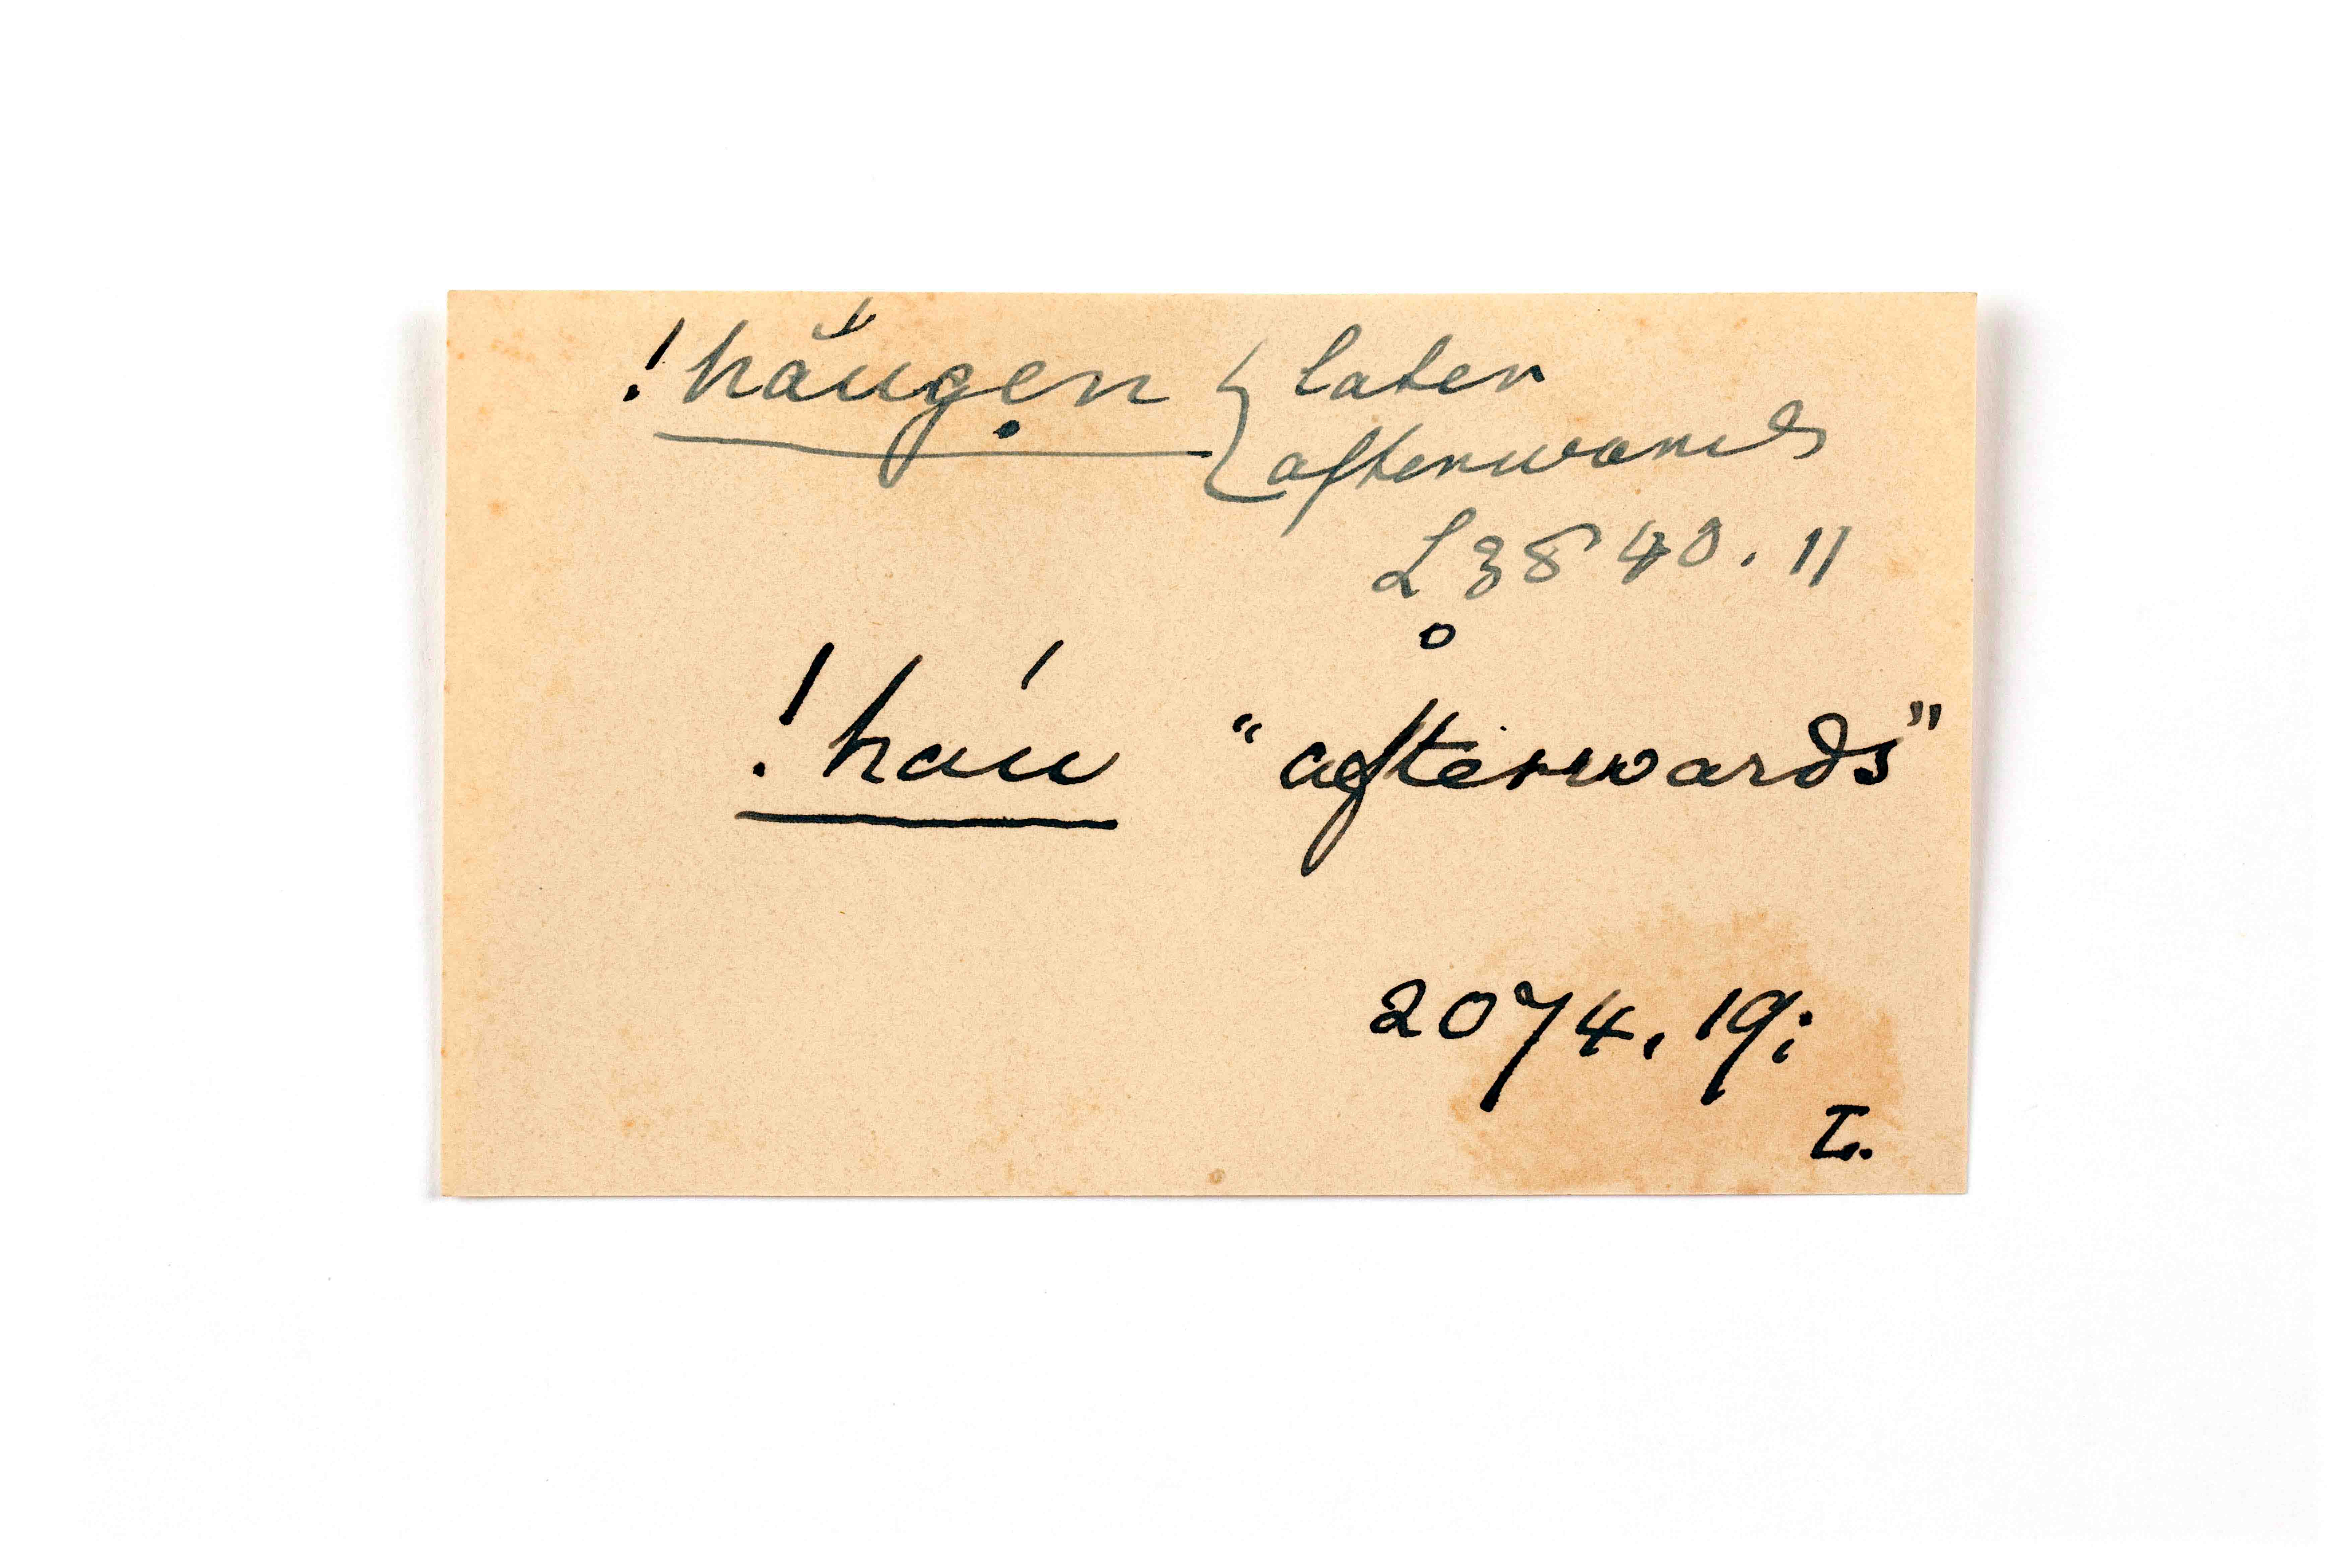 !hắugẹn { later
afterwards
L 3840. 11
!háu "afterwards"
2074, 19;
L.